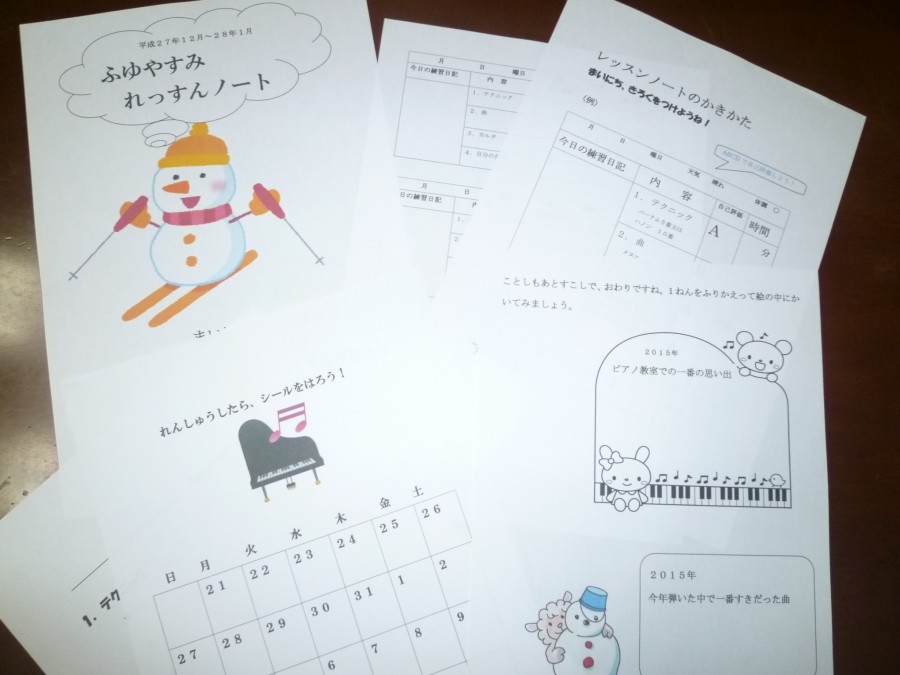 平成27年12月〜28年1月
ふゆやすみ
れっすんノート
月 日 曜日
今日の練習日記 内 容
1.テクニック
2.曲
3.カルタ
月 日
の練習日記
レッスンノートのかきかた
まいにち、きろくをつけようね!
(例)
月 日 曜日 天気 晴れ 体調 ○
今日の練習日記 内 容 自己評価 時間
1.テクニック A 分
ハノン 15番
2.曲
ことしもあとすこしで、おわりですね。1ねんをふりかえって絵の中にか
いてみましょう。
2015年
ピアノ教室での一番の思い出
2015年
今年弾いた中で一番すきだった曲
れんしゅうしたら、シールをはろう!
日 月 火 水 木 金 土
21 22 23 24 25 26
27 28 29 30 31 1 2
6 7 8 9
1.テク